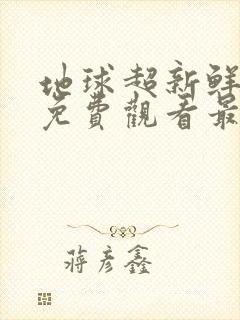 地球超新鲜
免費觀看最
蔣彦鑫